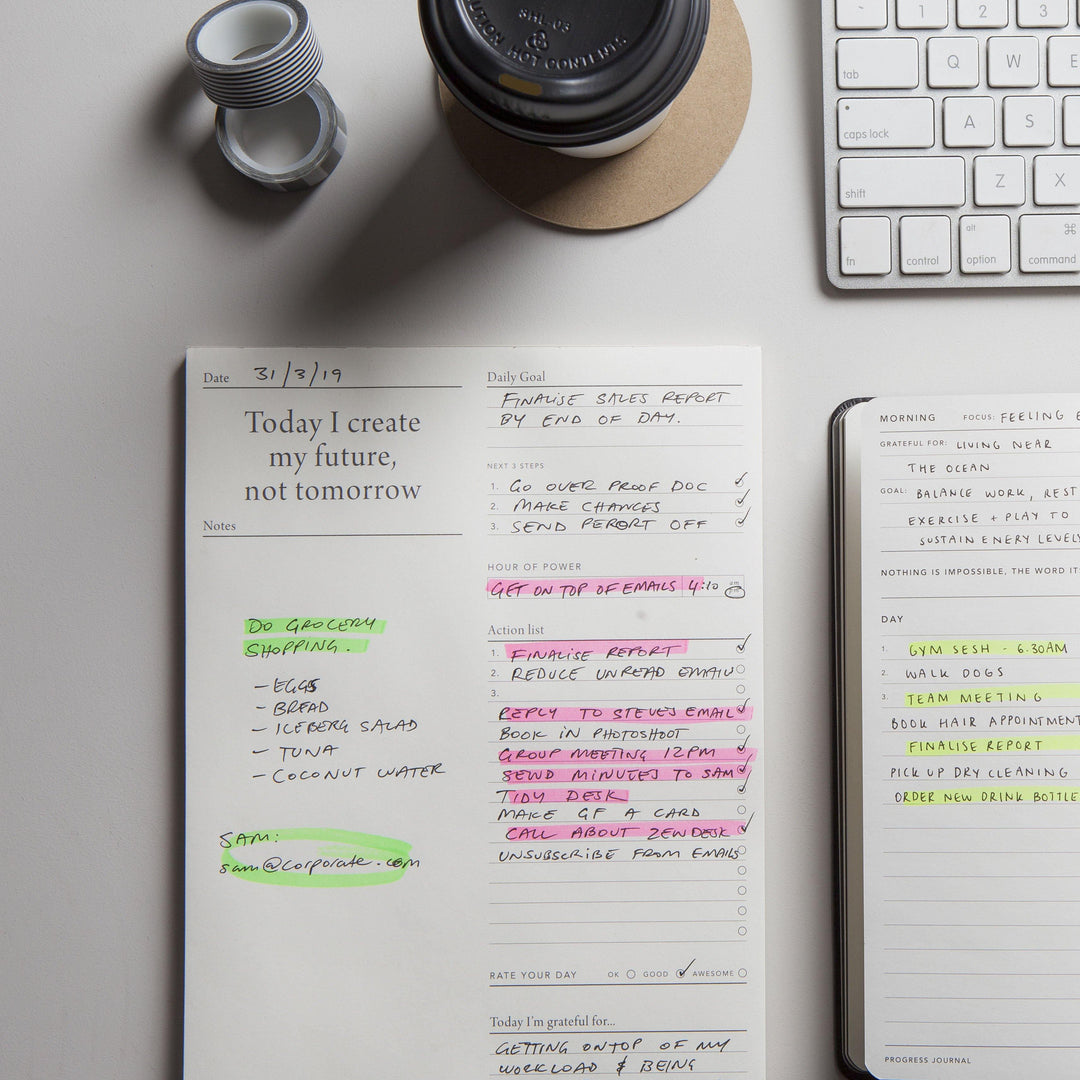 SHL-03
CAUTION HOT CONTENTS
~ 1 2 3
tab Q W E
caps lock A S
shift Z X
fn control alt option ⌘ command
Date 31/3/19
Today I create
my future,
not tomorrow
Notes
DO GROCERY
SHOPPING.
- EGGS
- BREAD
- ICEBERG SALAD
- TUNA
- COCONUT WATER
SAM:
sam@corporate.com
Daily Goal
FINALISE SALES REPORT
BY END OF DAY.
NEXT 3 STEPS
1. GO OVER PROOF DOC
2. MAKE CHANGES
3. SEND REPORT OFF
HOUR OF POWER
GET ON TOP OF EMAILS 4:10 am pm
Action list
1. FINALISE REPORT
2. REDUCE UNREAD EMAILS
3.
REPLY TO STEVES EMAIL
BOOK IN PHOTOSHOOT
GROUP MEETING 12PM
SEND MINUTES TO SAM
TIDY DESK
MAKE GF A CARD
CALL ABOUT ZENDESK
UNSUBSCRIBE FROM EMAILS
RATE YOUR DAY OK GOOD AWESOME
Today I'm grateful for...
GETTING ON TOP OF MY
WORKLOAD & BEING
MORNING FOCUS: FEELING E
GRATEFUL FOR: LIVING NEAR
THE OCEAN
GOAL: BALANCE WORK, REST
EXERCISE + PLAY TO
SUSTAIN ENERY LEVELS
NOTHING IS IMPOSSIBLE, THE WORD IT
DAY
1. GYM SESH - 6.30AM
2. WALK DOGS
3. TEAM MEETING
BOOK HAIR APPOINTMENT
FINALISE REPORT
PICK UP DRY CLEANING
ORDER NEW DRINK BOTTLE
PROGRESS JOURNAL